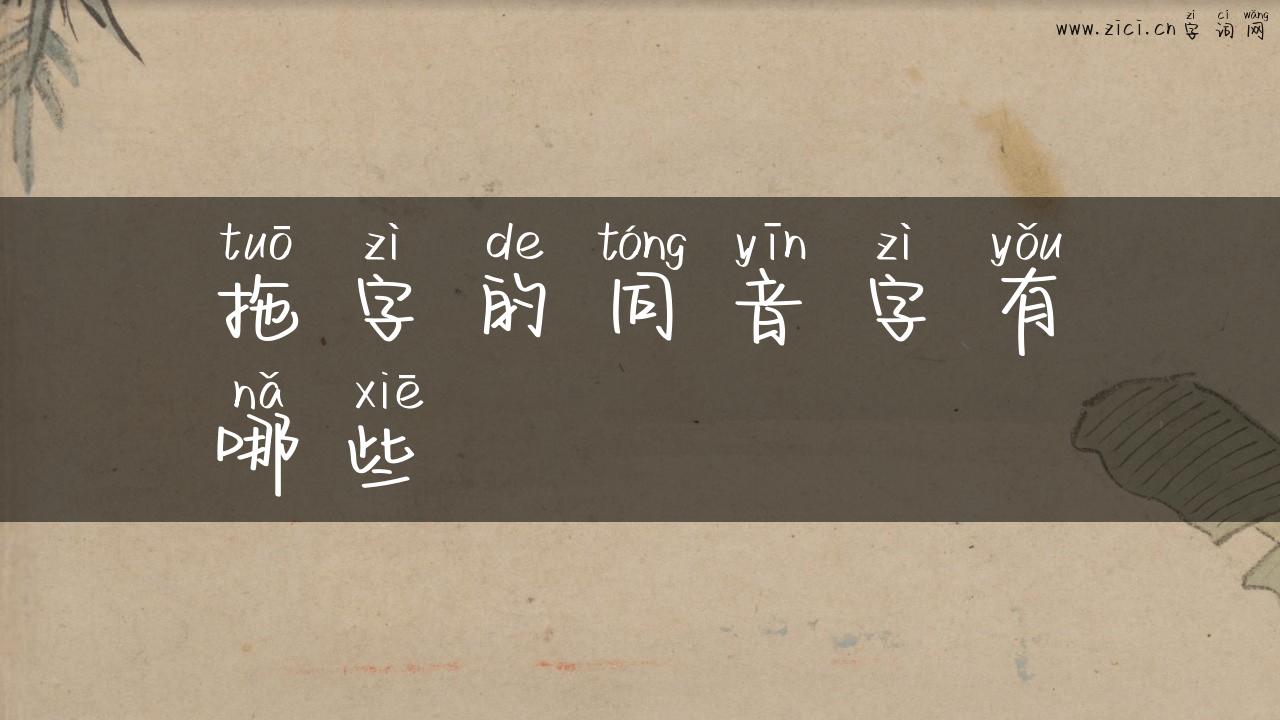 zì cí wǎng
www.zici.cn 字 词 网
tuō zì de tóng yīn zì yǒu
拖 字 的 同 音 字 有
nǎ xiē
哪 些